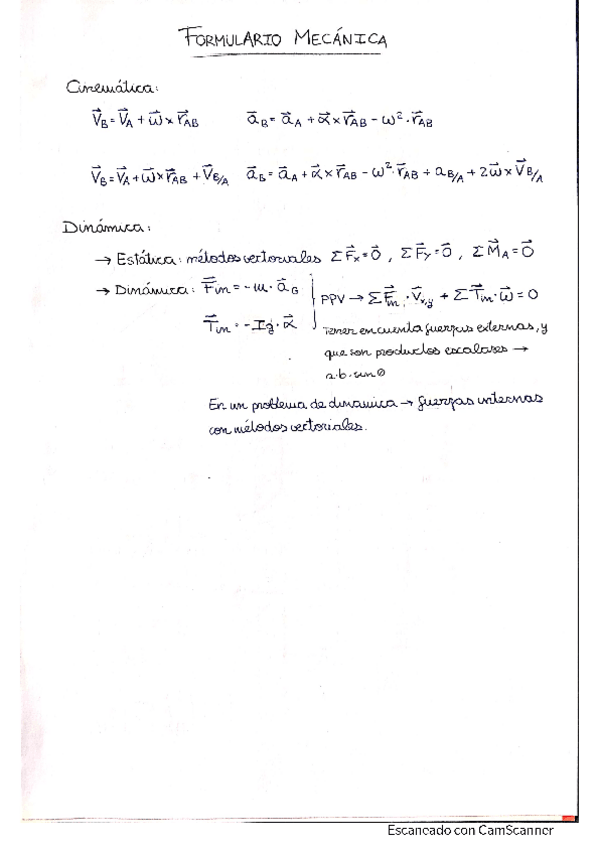 FORMULARIO MECÁNICA
Cinemática:
V⃗B = V⃗A + ω⃗ × r⃗AB    a⃗B = a⃗A + α⃗ × r⃗AB - ω² · r⃗AB
V⃗B = V⃗A + ω⃗ × r⃗AB + V⃗B/A    a⃗B = a⃗A + α⃗ × r⃗AB - ω² · r⃗AB + aB/A + 2ω⃗ × V⃗B/A
Dinámica:
→ Estática: métodos vectoriales Σ F⃗x = 0⃗ , Σ F⃗y = 0⃗ , Σ M⃗A = 0⃗
→ Dinámica: F⃗in = -m · a⃗G    PPV → Σ F⃗in · V⃗x,y + Σ T⃗in · ω⃗ = 0
T⃗in = -Ig · α⃗    Tener en cuenta fuerzas externas, y
que son productos escalares →
a·b·sin θ
En un problema de dinamica → fuerzas internas
con métodos vectoriales.
Escaneado con CamScanner